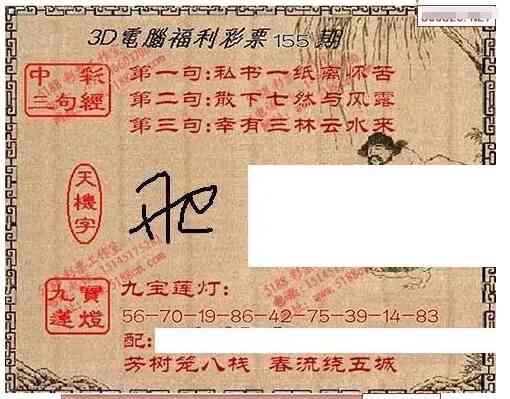 3D電腦福利彩票155期
中彩
三句經
第一句:私书一纸离怀苦
第二句:散下七然与风露
第三句:幸有三林云水来
天機字
九寶蓮燈
九宝莲灯:
56-70-19-86-42-75-39-14-83
配:
芳树笼八栈 春流绕五城